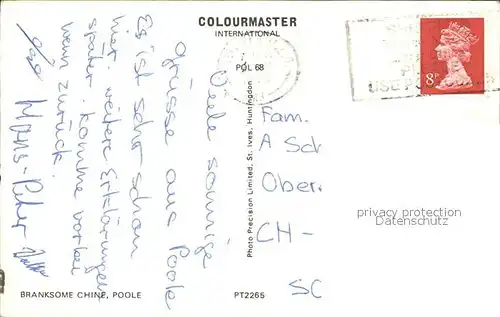 COLOURMASTER
INTERNATIONAL
POL 68
8P
USE
Viele sonnige
Grüsse aus Poole
Es ist sehr schön
hier. weitere Erklärungen
später. Komme vorbei
wenn zurück.
Hans-Peter
Fam.
A Sch
Ober.
CH -
SC
privacy protection
Datenschutz
Photo Precision Limited, St. Ives, Huntingdon
BRANKSOME CHINE, POOLE
PT2265